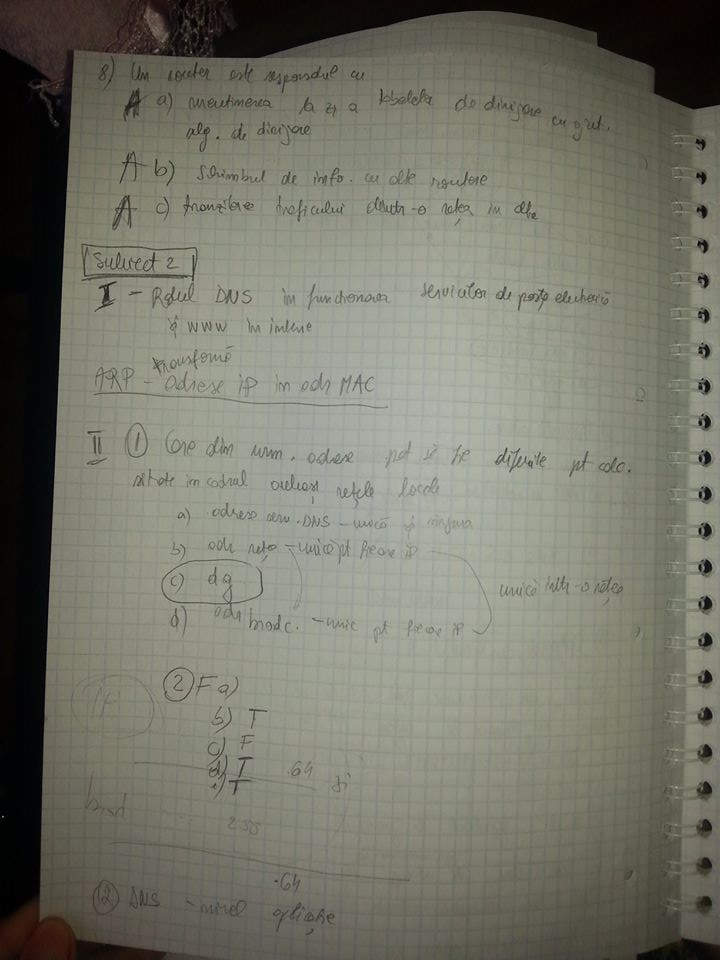 8) Un router este responsabil cu
A a) mentinerea la zi a tabelelor de dirijare cu ajut.
alg. de dirijare
A b) Schimbul de info. cu alte routere
A c) tranzitarea traficului dintr-o rețea in alta
Subiect 2
I - Rolul DNS in functionarea serviciilor de poșta electronică
și WWW in
transformă
ARP - adrese IP in adr MAC
II 1 Care din urm. adrese pot să fie diferite pt calc.
situate in cadrul aceleași rețele locale
a) adrese serv. DNS - unică și
b) adr rețea - unică pt fiecare ip
c) dg
unică intr-o rețea
d) adr broadc. - unic pt fiecare IP
2 F a)
b) T
c) F
d) T .64
e) T și
IP
broad
255
.64
12 DNS - nivel aplicație